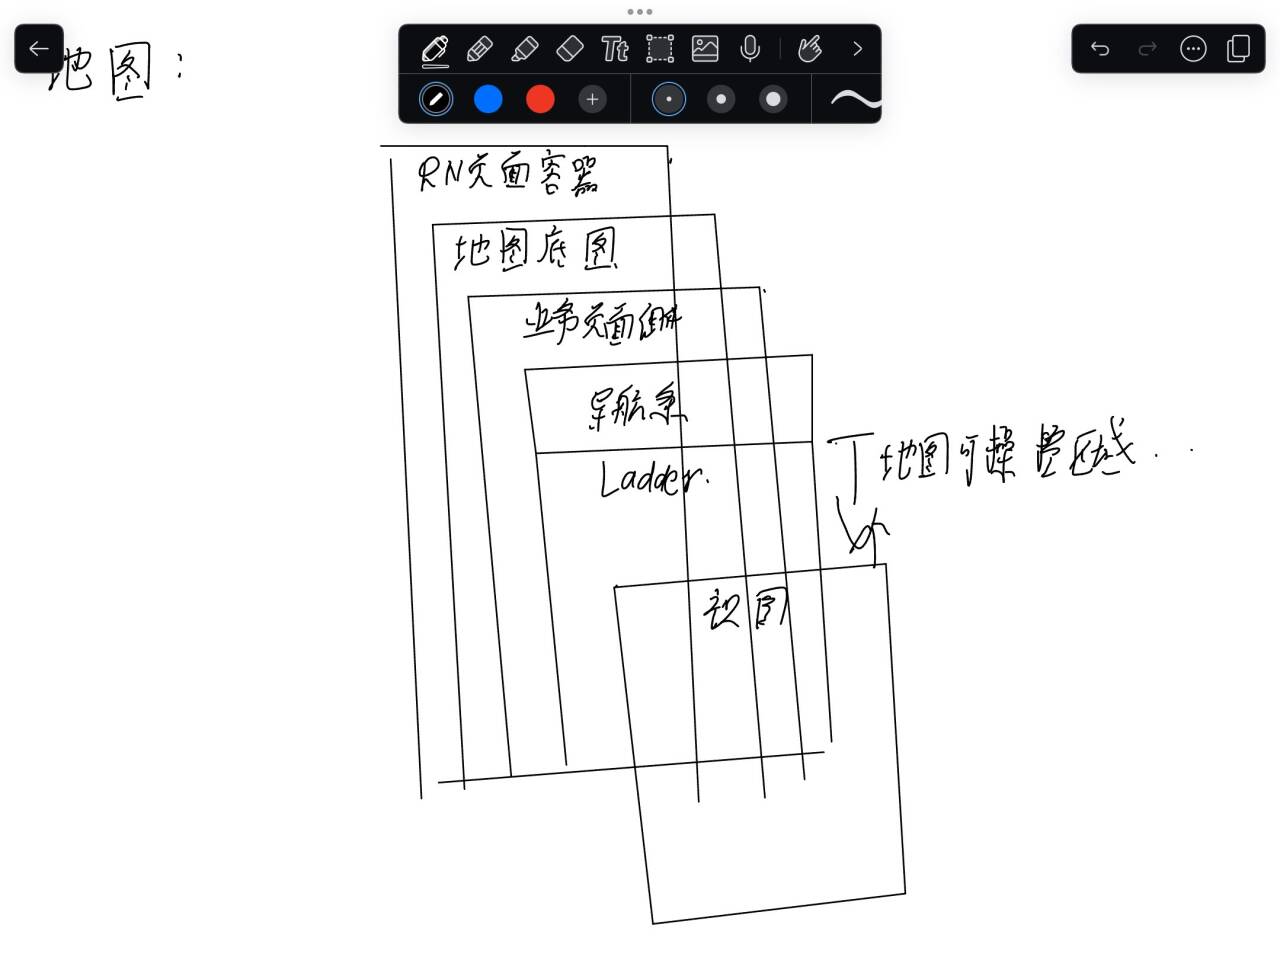 地图：
Tt
RN页面容器
地图底图
业务页面组件
导航条
Ladder.
地图可操作区域...